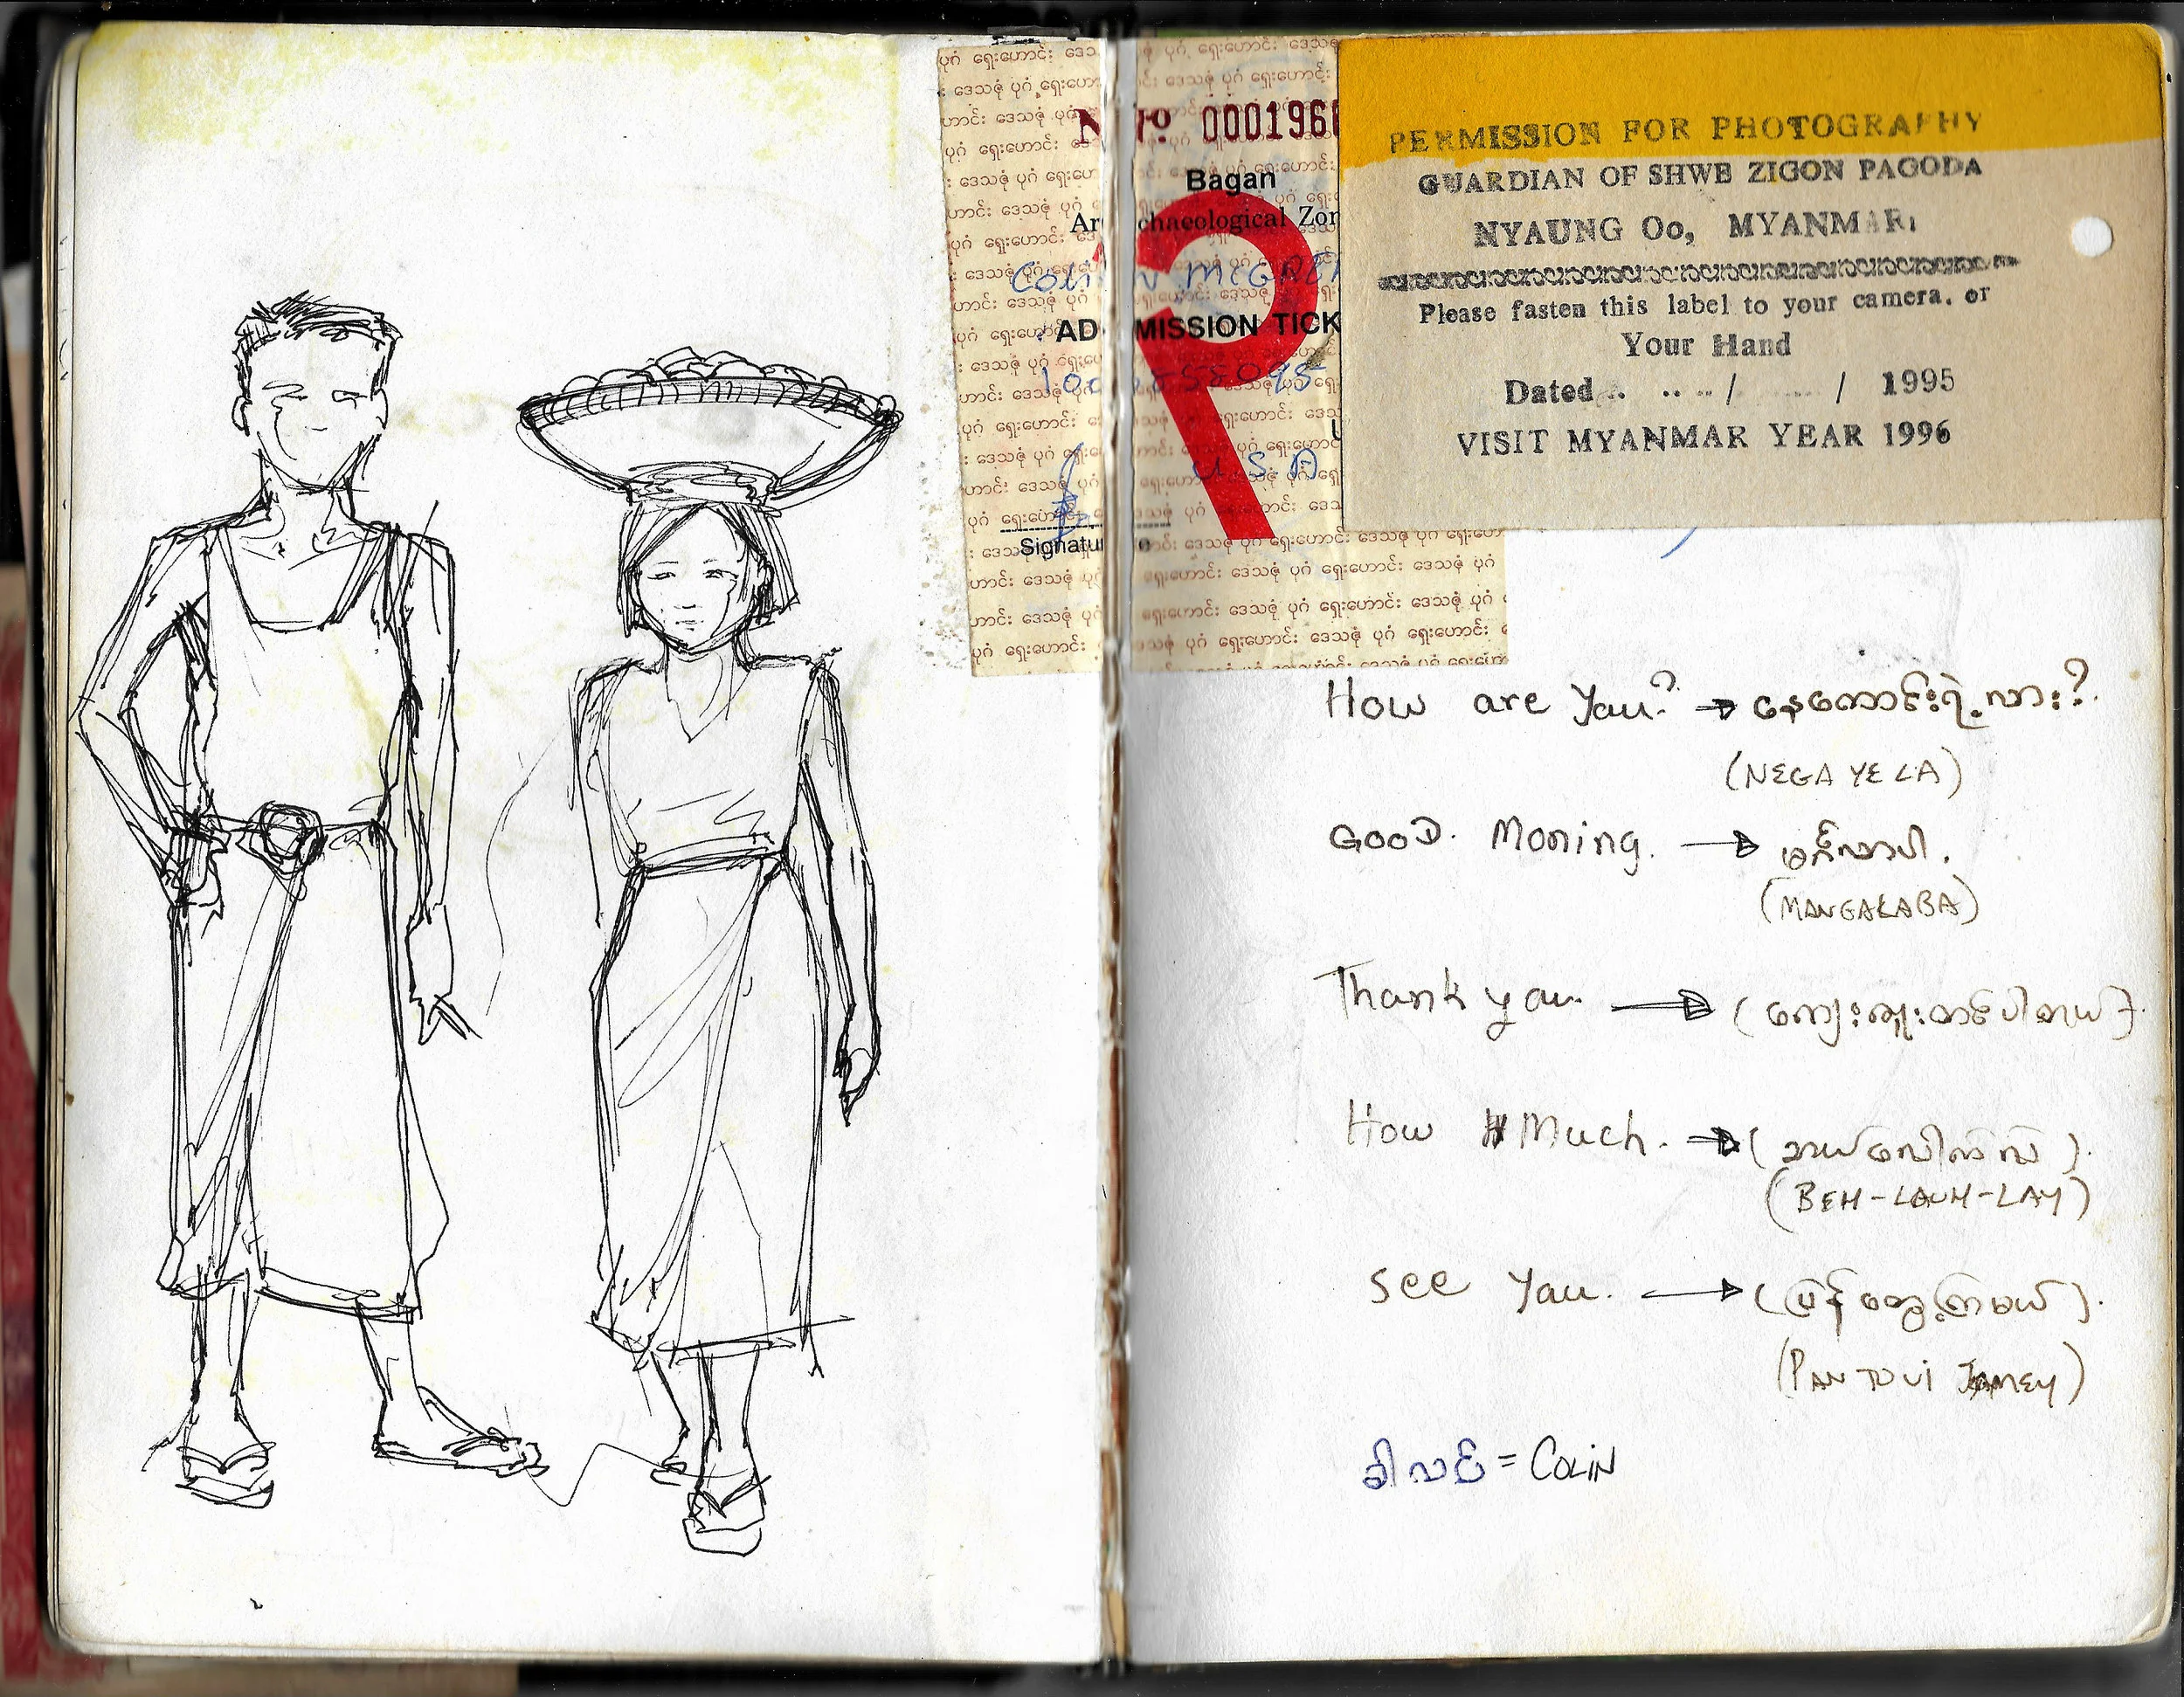 ပုဂံ ရှေးဟောင်း ဒေသဇုံ ပုဂံ ရှေးဟောင်း ဒေသဇုံ
No 000196
Bagan
Archaeological Zon
COLIN McGREE
ADMISSION TICK
U.S.A
Signature
PERMISSION FOR PHOTOGRAPHY
GUARDIAN OF SHWE ZIGON PAGODA
NYAUNG Oo, MYANMAR
Please fasten this label to your camera. or
Your Hand
Dated / / 1995
VISIT MYANMAR YEAR 1996
How are You? → နေကောင်းရဲ့လား?
(NEGA YE LA)
GOOD. Moning. → မင်္ဂလာပါ.
(MANGALABA)
Thank you. → (ကျေးဇူးတင်ပါတယ်).
How Much. → (ဘယ်လောက်လဲ).
(BEH-LAUH-LAY)
See You. → (ပြန်တွေ့ကြမယ်).
(PAN TO VI JAMEY)
ခါလင် = COLIN